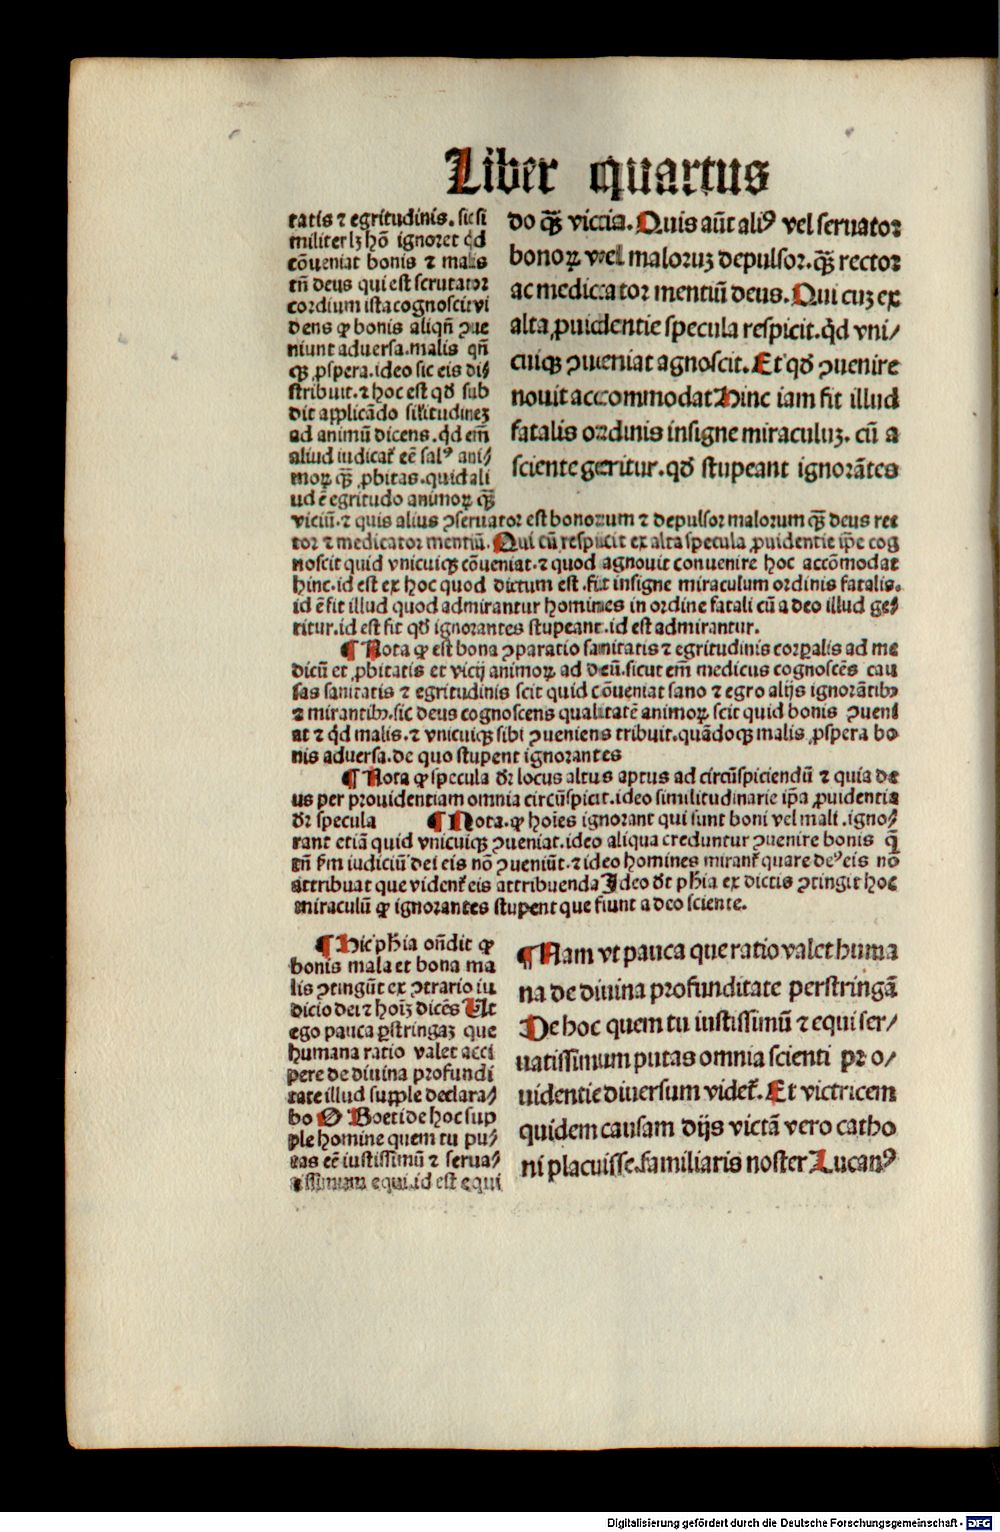 Liber quartus
tatis ⁊ egritudinis. sic si
militer lꝫ hō ignoret qd̓
cōueniat bonis ⁊ malis
tn̄ deus qui est scrutator
cordium ista cognoscit vi
dens ꝙ bonis aliqn̄ ꝯue
niunt aduersa. malis qn̄
qꝫ ꝓspera. ideo sic eis di⸗
stribuit. ⁊ hoc est qd̓ sub
dit applicādo silitudinez
ad animū dicens. qd̓ em̄
aliud iudicat̓ eē salꝰ ani⸗
moꝝ qꝫ̄ ꝓbitas. quid ali
ud ē egritudo animoꝝ qꝫ̄
do qꝫ̄ viccia. Quis aūt aliꝰ vel seruator
bonoꝝ vel maloruꝫ depulsor. qꝫ̄ rector
ac medicator mentiū deus. Qui cuꝫ ex
alta ꝓuidentie specula respicit. qd̓ vni⸗
cuiqꝫ ꝯueniat agnoscit. Et qd̓ ꝯuenire
nouit accommodat Hinc iam fit illud
fatalis ordinis insigne miraculuꝫ. cū a
sciente geritur. qd̓ stupeant ignorātes
viciū. ⁊ quis alius ꝯseruator est bonorum ⁊ depulsor malorum qꝫ̄ deus rec
tor ⁊ medicator mentiū. Qui cū respicit ex alta specula ꝓuidentie ip̄e cog
noscit quid vnicuiqꝫ cōueniat. ⁊ quod agnouit conuenire hoc accōmodat
hinc. id est ex hoc quod dictum est. fit insigne miraculum ordinis fatalis.
id ē fit illud quod admirantur homines in ordine fatali cū a deo illud ge⸗
ritur. id est fit qd̓ ignorantes stupeant. id est admirantur.
¶ Nota ꝙ est bona ꝯparatio sanitatis ⁊ egritudinis corꝑalis ad me
dicū et ꝓbitatis et vicij animoꝝ ad deū. sicut em̄ medicus cognoscēs cau
sas sanitatis ⁊ egritudinis scit quid cōueniat sano ⁊ egro alijs ignorātibꝫ
⁊ mirantibꝫ. sic deus cognoscens qualitatē animoꝝ scit quid bonis ꝯueni
at ⁊ qd̓ malis. ⁊ vnicuiqꝫ sibi ꝯueniens tribuit. quādoqꝫ malis ꝓspera bo
nis aduersa. de quo stupent ignorantes
¶ Nota ꝙ specula dr̄ locus altus aptus ad circūspiciendū ⁊ quia de
us per prouidentiam omnia circūspicit. ideo similitudinarie ip̄a ꝓuidentia
dr̄ specula ¶ Nota. ꝙ hoīes ignorant qui sunt boni vel mali. igno⸗
rant etiā quid vnicuiqꝫ ꝯueniat. ideo aliqua creduntur ꝯuenire bonis q̄
tn̄ ẜm iudiciū dei eis nō ꝯueniūt. ⁊ ideo homines mirant̓ quare deꝰ eis nō
attribuat que vident̓ eis attribuenda Ideo dt̓ ph̄ia ex dictis ꝯtingit hoc
miraculū ꝙ ignorantes stupent que fiunt a deo sciente.
¶ Hic ph̄ia ōndit ꝙ
bonis mala et bona ma
lis ꝯtingūt ex ꝯtrario iu
dicio dei ⁊ hoīꝫ dicēs Ut
ego pauca ꝑstringaꝫ que
humana ratio valet acci
pere de diuina profundi
tate illud supple declara⸗
bo O Boeti de hoc sup
ple homine quem tu pu⸗
tas eē iustissimū ⁊ serua⸗
tissimum equi. id est equi
¶ Nam vt pauca que ratio valet huma
na de diuina profunditate perstringā
De hoc quem tu iustissimū ⁊ equi ser⸗
uatissimum putas omnia scienti pro⸗
uidentie diuersum videt̓. Et victricem
quidem causam dijs victā vero catho
ni placuisse. familiaris noster Lucanꝰ
Digitalisierung gefördert durch die Deutsche Forschungsgemeinschaft - DFG